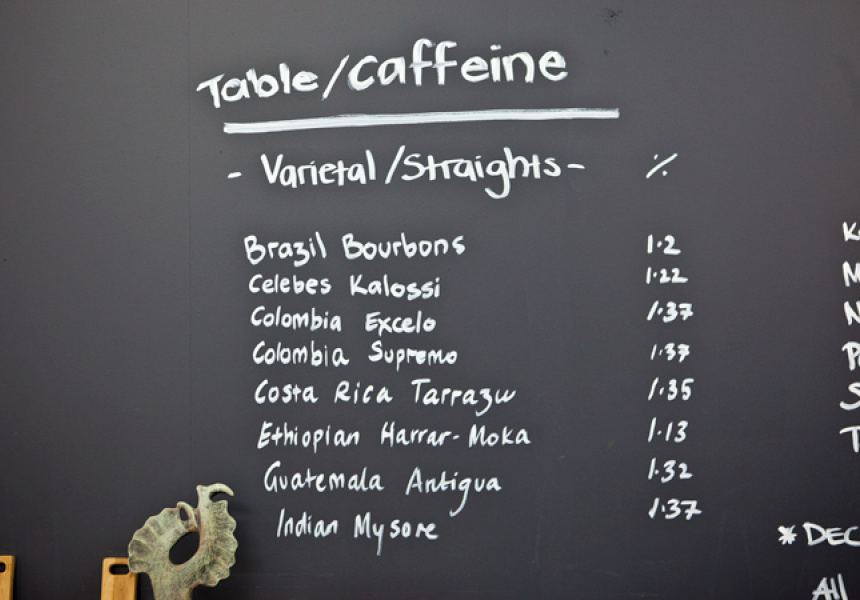 Table/Caffeine
- Varietal/Straights- %
Brazil Bourbons 1.2
Celebes Kalossi 1.22
Colombia Excelo 1.37
Colombia Supremo 1.37
Costa Rica Tarrazu 1.35
Ethiopian Harrar-Moka 1.13
Guatemala Antigua 1.32
Indian Mysore 1.37
* DEC
All